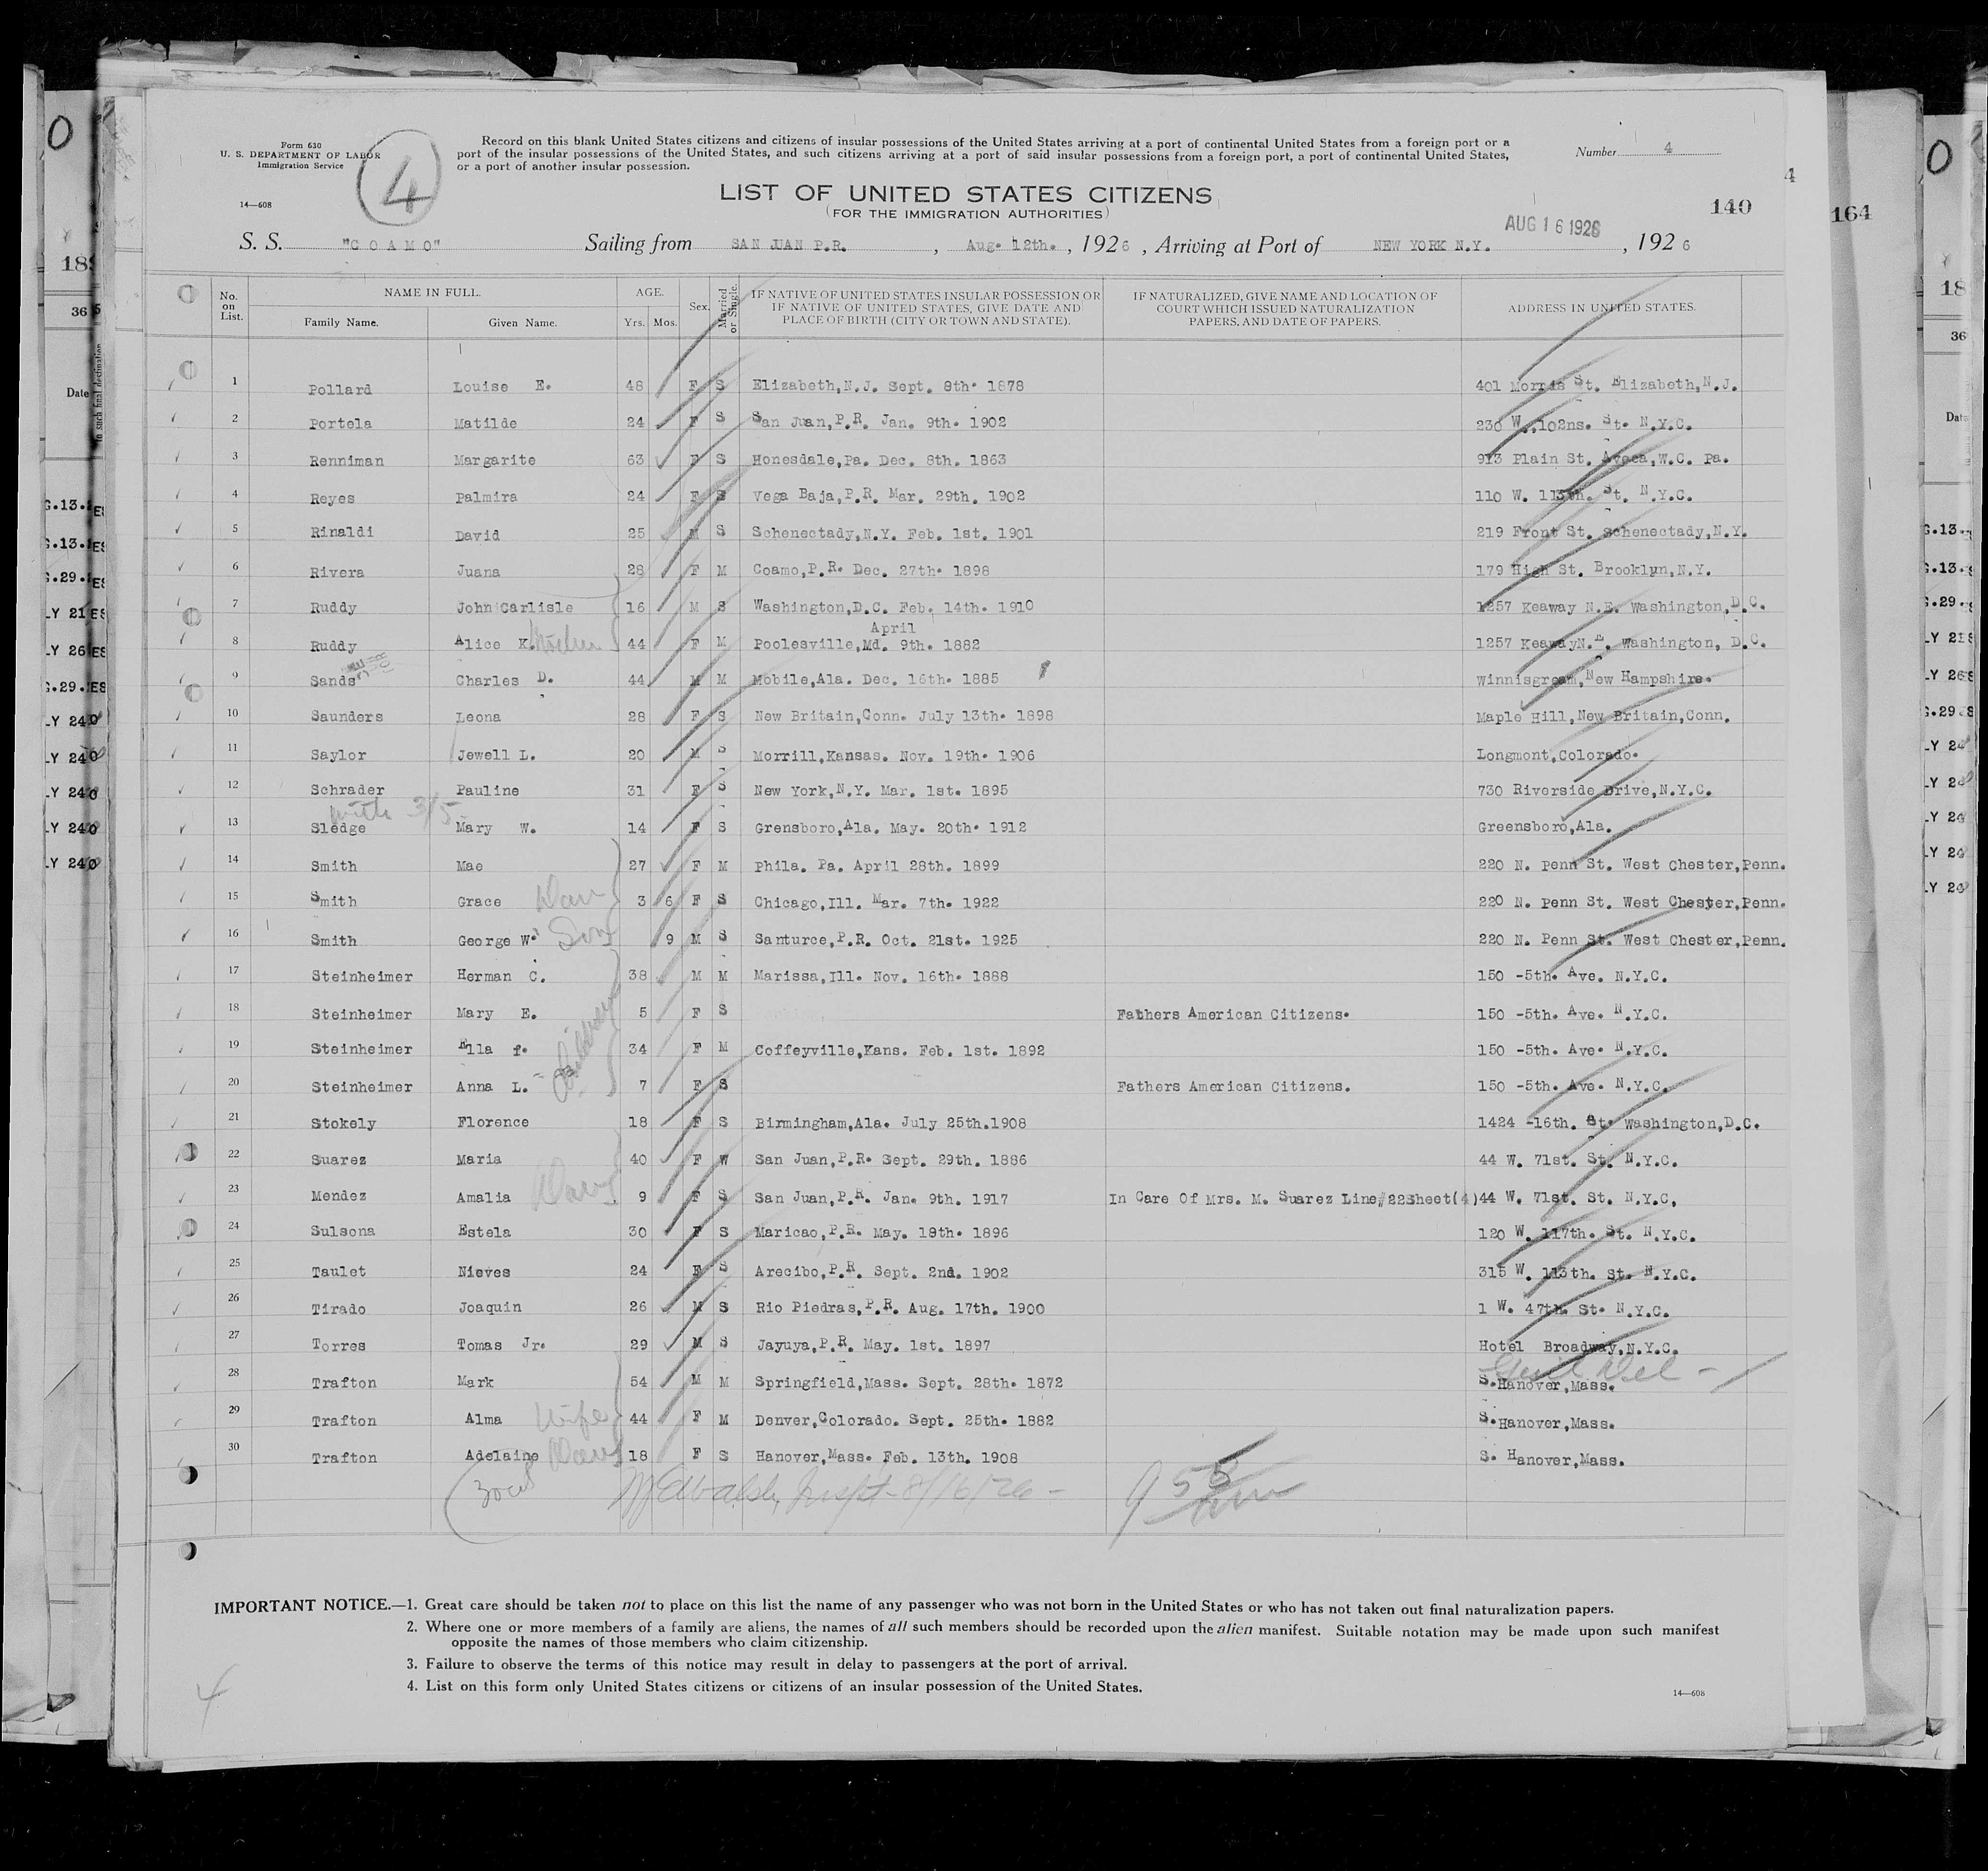 Form 630
U. S. DEPARTMENT OF LABOR
Immigration Service
14—608
4
Record on this blank United States citizens and citizens of insular possessions of the United States arriving at a port of continental United States from a foreign port or a
port of the insular possessions of the United States, and such citizens arriving at a port of said insular possessions from a foreign port, a port of continental United States,
or a port of another insular possession.
Number 4
LIST OF UNITED STATES CITIZENS
(FOR THE IMMIGRATION AUTHORITIES)
140
164
AUG 16 1926
S. S. "COAMO" Sailing from SAN JUAN P.R. , Aug. 12th. , 1926 , Arriving at Port of NEW YORK N.Y. , 1926
No. on List. NAME IN FULL. AGE. Sex. Married or Single. IF NATIVE OF UNITED STATES INSULAR POSSESSION OR IF NATIVE OF UNITED STATES, GIVE DATE AND PLACE OF BIRTH (CITY OR TOWN AND STATE). IF NATURALIZED, GIVE NAME AND LOCATION OF COURT WHICH ISSUED NATURALIZATION PAPERS, AND DATE OF PAPERS. ADDRESS IN UNITED STATES.
Family Name. Given Name. Yrs. Mos.
1 Pollard Louise E. 48 F S Elizabeth,N.J. Sept. 8th. 1878 401 Morris St. Elizabeth,N.J.
2 Portela Matilde 24 F S San Juan,P.R. Jan. 9th. 1902 230 W..102ns. St. N.Y.C.
3 Renniman Margarite 63 F S Honesdale,Pa. Dec. 8th. 1863 913 Plain St. Avoca,W.C. Pa.
4 Reyes Palmira 24 F S Vega Baja,P.R. Mar. 29th. 1902 110 W. 113th. St. N.Y.C.
5 Rinaldi David 25 M S Schenectady,N.Y. Feb. 1st. 1901 219 Front St. Schenectady,N.Y.
6 Rivera Juana 28 F M Coamo,P.R. Dec. 27th. 1898 179 High St. Brooklyn,N.Y.
7 Ruddy John Carlisle 16 M S Washington,D.C. Feb. 14th. 1910 1257 Keaway N.E. Washington,D.C.
April
8 Ruddy Alice K. Mother 44 F M Poolesville,Md. 9th. 1882 1257 KeawayN.E. Washington, D.C.
9 Sands Charles D. 44 M M Mobile,Ala. Dec. 16th. 1885 Winnisgream,New Hampshire.
10 Saunders Leona 28 F S New Britain,Conn. July 13th. 1898 Maple Hill,New Britain,Conn.
11 Saylor Jewell L. 20 M S Morrill,Kansas. Nov. 19th. 1906 Longmont,Colorado.
12 Schrader Pauline 31 F S New York,N.Y. Mar. 1st. 1895 730 Riverside Drive,N.Y.C.
with 3/5
13 Sledge Mary W. 14 F S Grensboro,Ala. May. 20th. 1912 Greensboro,Ala.
14 Smith Mae 27 F M Phila. Pa. April 28th. 1899 220 N. Penn St. West Chester,Penn.
15 Smith Grace Dau 3 6 F S Chicago,Ill. Mar. 7th. 1922 220 N. Penn St. West Chester,Penn.
16 Smith George W. Son 9 M S Santurce,P.R. Oct. 21st. 1925 220 N. Penn St. West Chester,Penn.
17 Steinheimer Herman C. 38 M M Marissa,Ill. Nov. 16th. 1888 150 -5th. Ave. N.Y.C.
18 Steinheimer Mary E. 5 F S Fathers American Citizens. 150 -5th. Ave. N.Y.C.
Children
19 Steinheimer Ella f. 34 F M Coffeyville,Kans. Feb. 1st. 1892 150 -5th. Ave. N.Y.C.
20 Steinheimer Anna L. 7 F S Fathers American Citizens. 150 -5th. Ave. N.Y.C.
21 Stokely Florence 18 F S Birmingham,Ala. July 25th.1908 1424 -16th. St. Washington,D.C.
22 Suarez Maria 40 F W San Juan,P.R. Sept. 29th. 1886 44 W. 71st. St. N.Y.C.
23 Mendez Amalia Dau 9 F S San Juan,P.R. Jan. 9th. 1917 In Care Of Mrs. M. Suarez Line#22Sheet(4) 44 W. 71st. St. N.Y.C.
24 Sulsona Estela 30 F S Maricao,P.R. May. 18th. 1896 120 W. 117th. St. N.Y.C.
25 Taulet Nieves 24 F S Arecibo,P.R. Sept. 2nd. 1902 315 W. 113th. St. N.Y.C.
26 Tirado Joaquin 26 M S Rio Piedras,P.R. Aug. 17th. 1900 1 W. 47th. St. N.Y.C.
27 Torres Tomas Jr. 29 M S Jayuya,P.R. May. 1st. 1897 Hotel Broadway,N.Y.C.
28 Trafton Mark 54 M M Springfield,Mass. Sept. 28th. 1872 S.Hanover,Mass.
29 Trafton Alma Wife 44 F M Denver,Colorado. Sept. 25th. 1882 S.Hanover,Mass.
30 Trafton Adelaine Dau 18 F S Hanover,Mass. Feb. 13th. 1908 S. Hanover,Mass.
Inspt 8/16/26
955
IMPORTANT NOTICE.—1. Great care should be taken not to place on this list the name of any passenger who was not born in the United States or who has not taken out final naturalization papers.
2. Where one or more members of a family are aliens, the names of all such members should be recorded upon the alien manifest. Suitable notation may be made upon such manifest
opposite the names of those members who claim citizenship.
3. Failure to observe the terms of this notice may result in delay to passengers at the port of arrival.
4. List on this form only United States citizens or citizens of an insular possession of the United States.
14—608
4